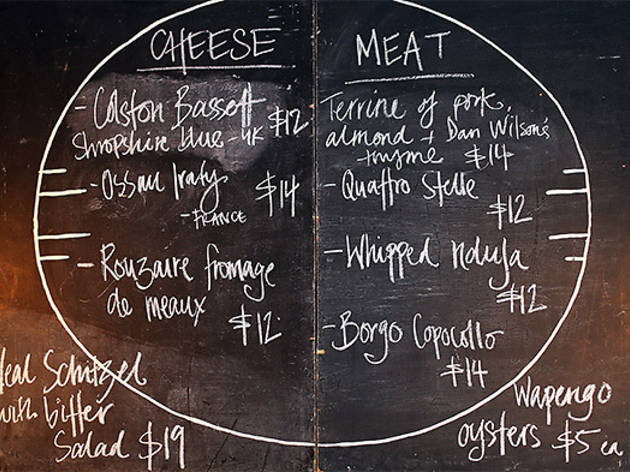 CHEESE
- Colston Bassett
Shropshire blue - UK $12
- Ossau Iraty $14
- FRANCE
- Rouzaire fromage
de meaux
$12
MEAT
Terrine of pork,
almond + Dan Wilson's
thyme $14
- Quattro Stelle
$12
- Whipped nduja
$12
- Borgo Copocollo
$14
Veal Schitzel
with bitter
Salad $19
Wapengo
oysters $5 ea